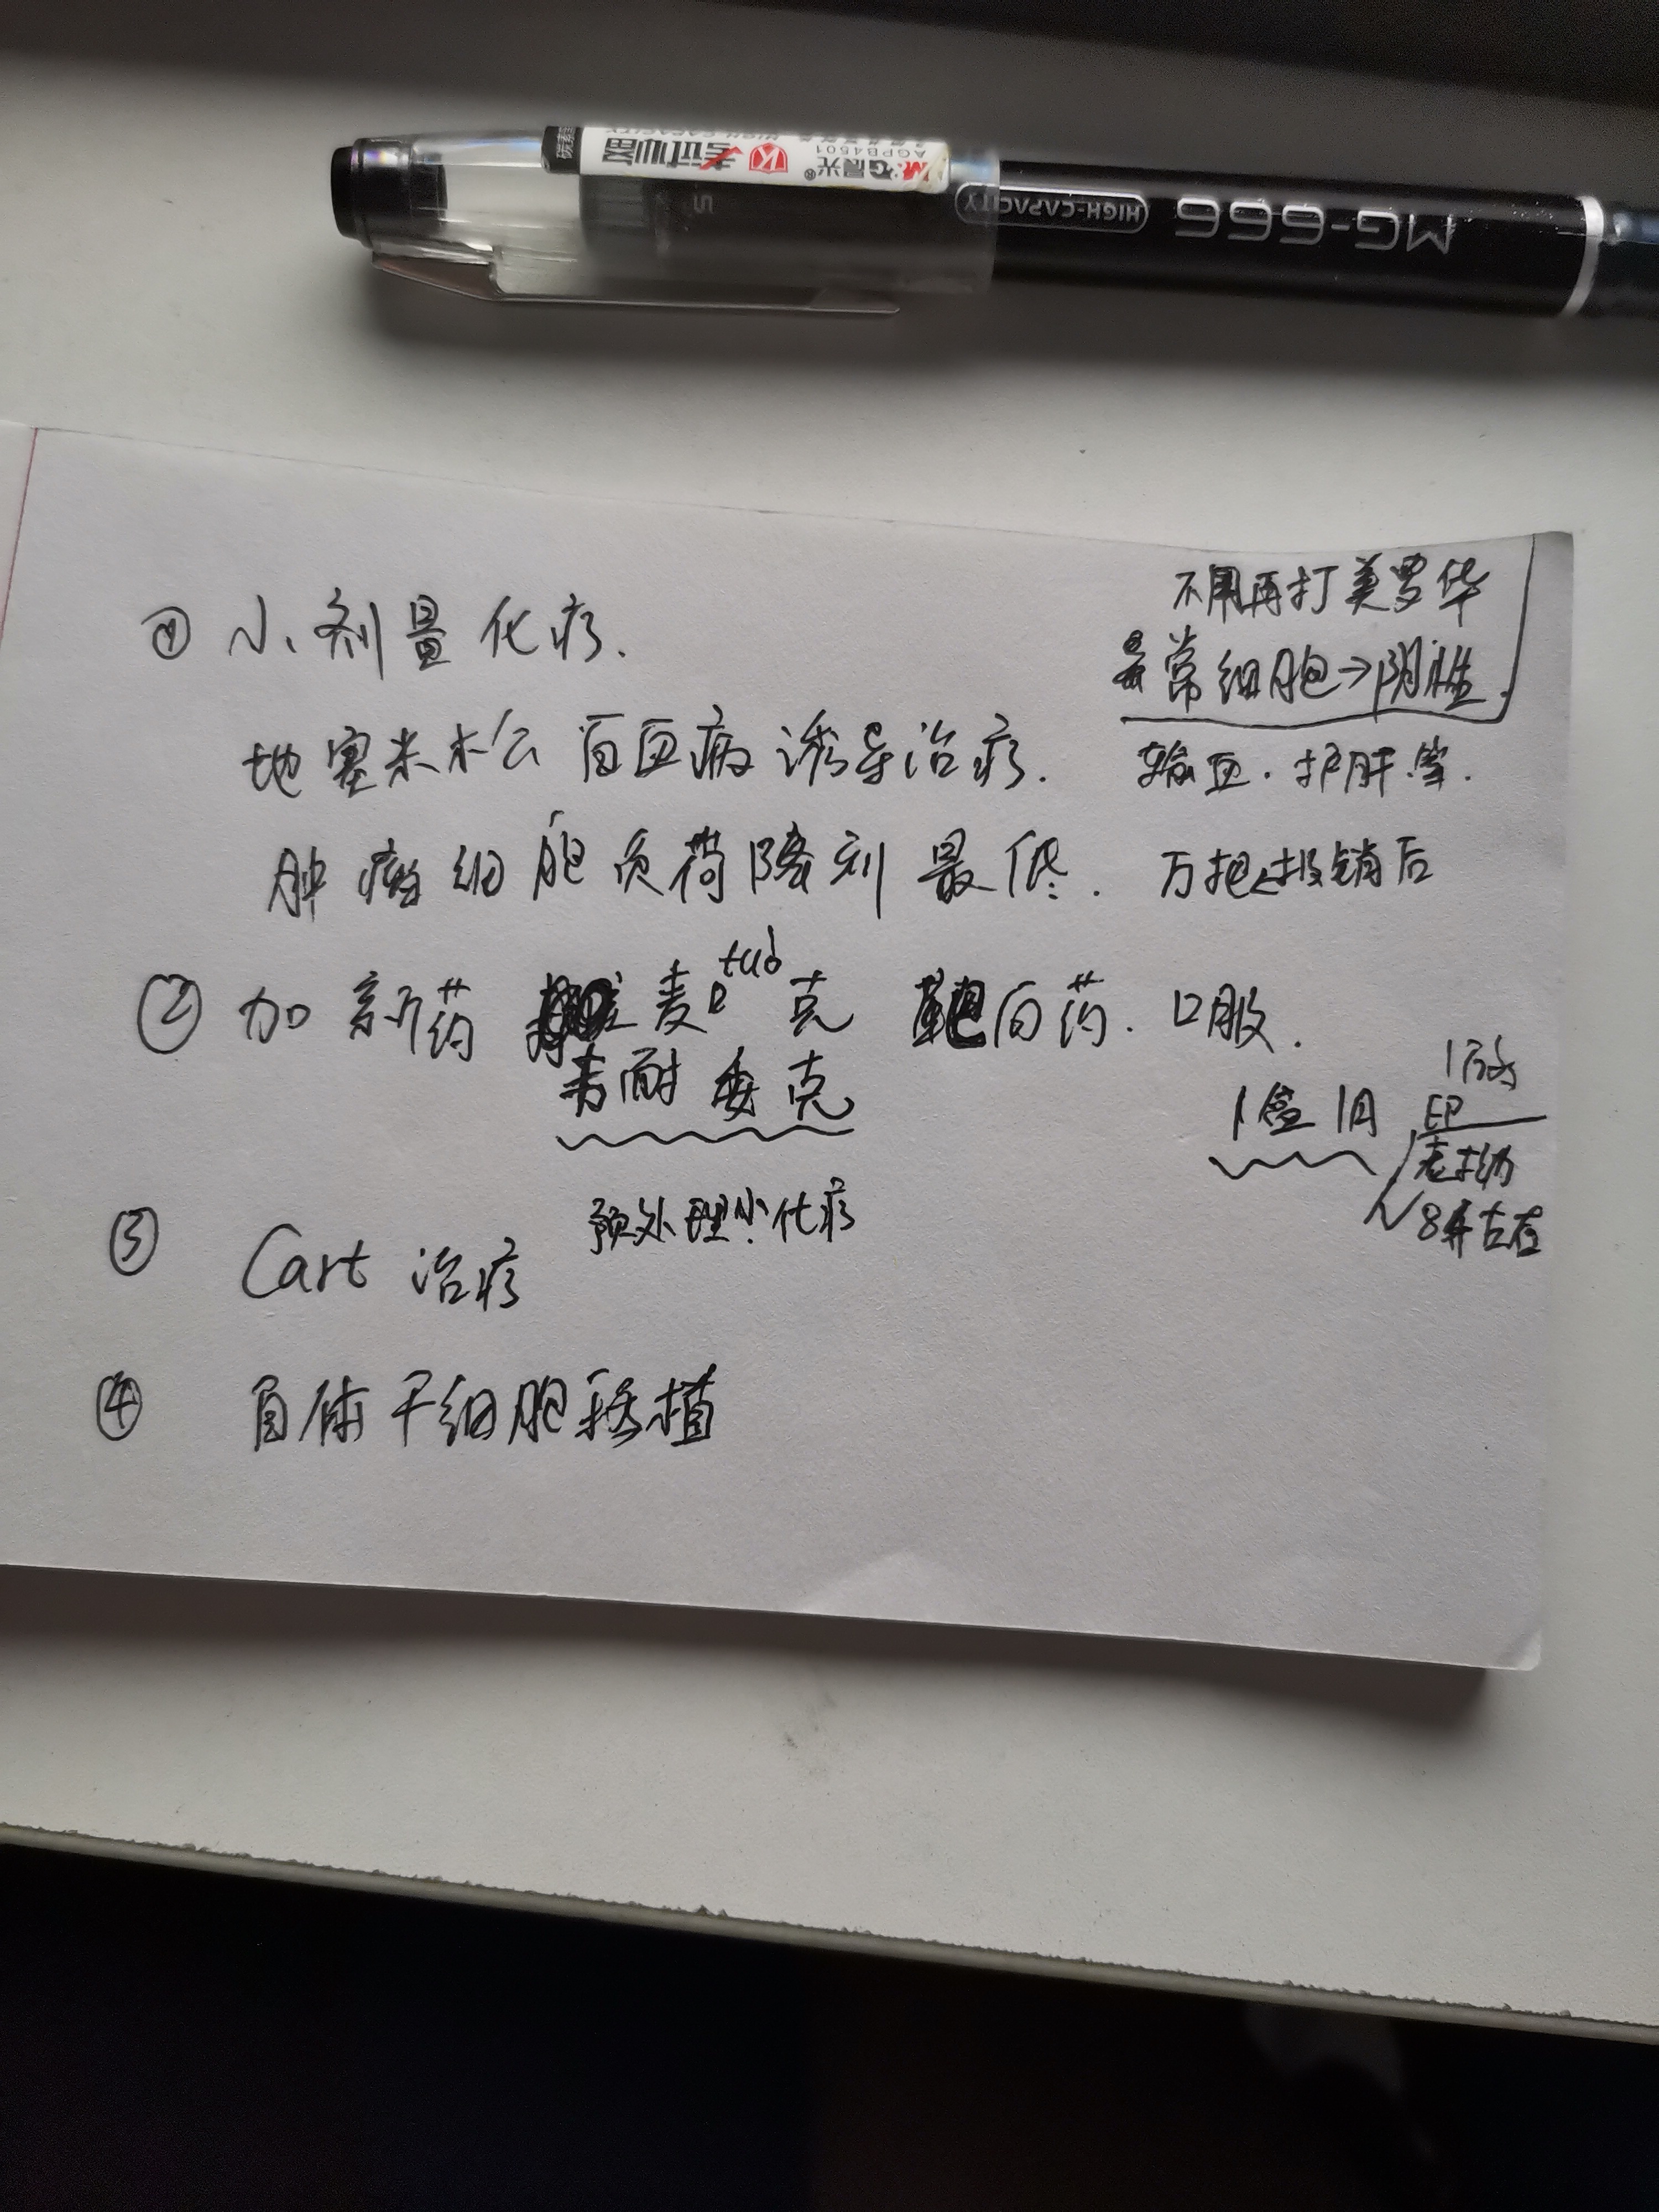 碳素黑
考试必备
HIGH-CAPACITY
M&G晨光®
AGPB4501
MG-666
HIGH-CAPACITY
不用再打美罗华
异常细胞→阴性
① 小剂量化疗.
地塞米松 白血病 诱导治疗.
输血.护肝等.
肿瘤细胞负荷降到最低.
万把 报销后
② 加新药 麦 tub 克 靶向药. 口服.
韦耐委克
1盒1月
1万多
8千左右
③ Cart 治疗
预处理小化疗
④ 自体干细胞移植